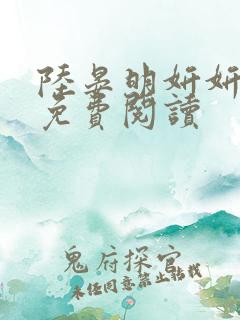 陸晏明妍妍
免費閱讀
鬼府探官
未任同意禁止轉載